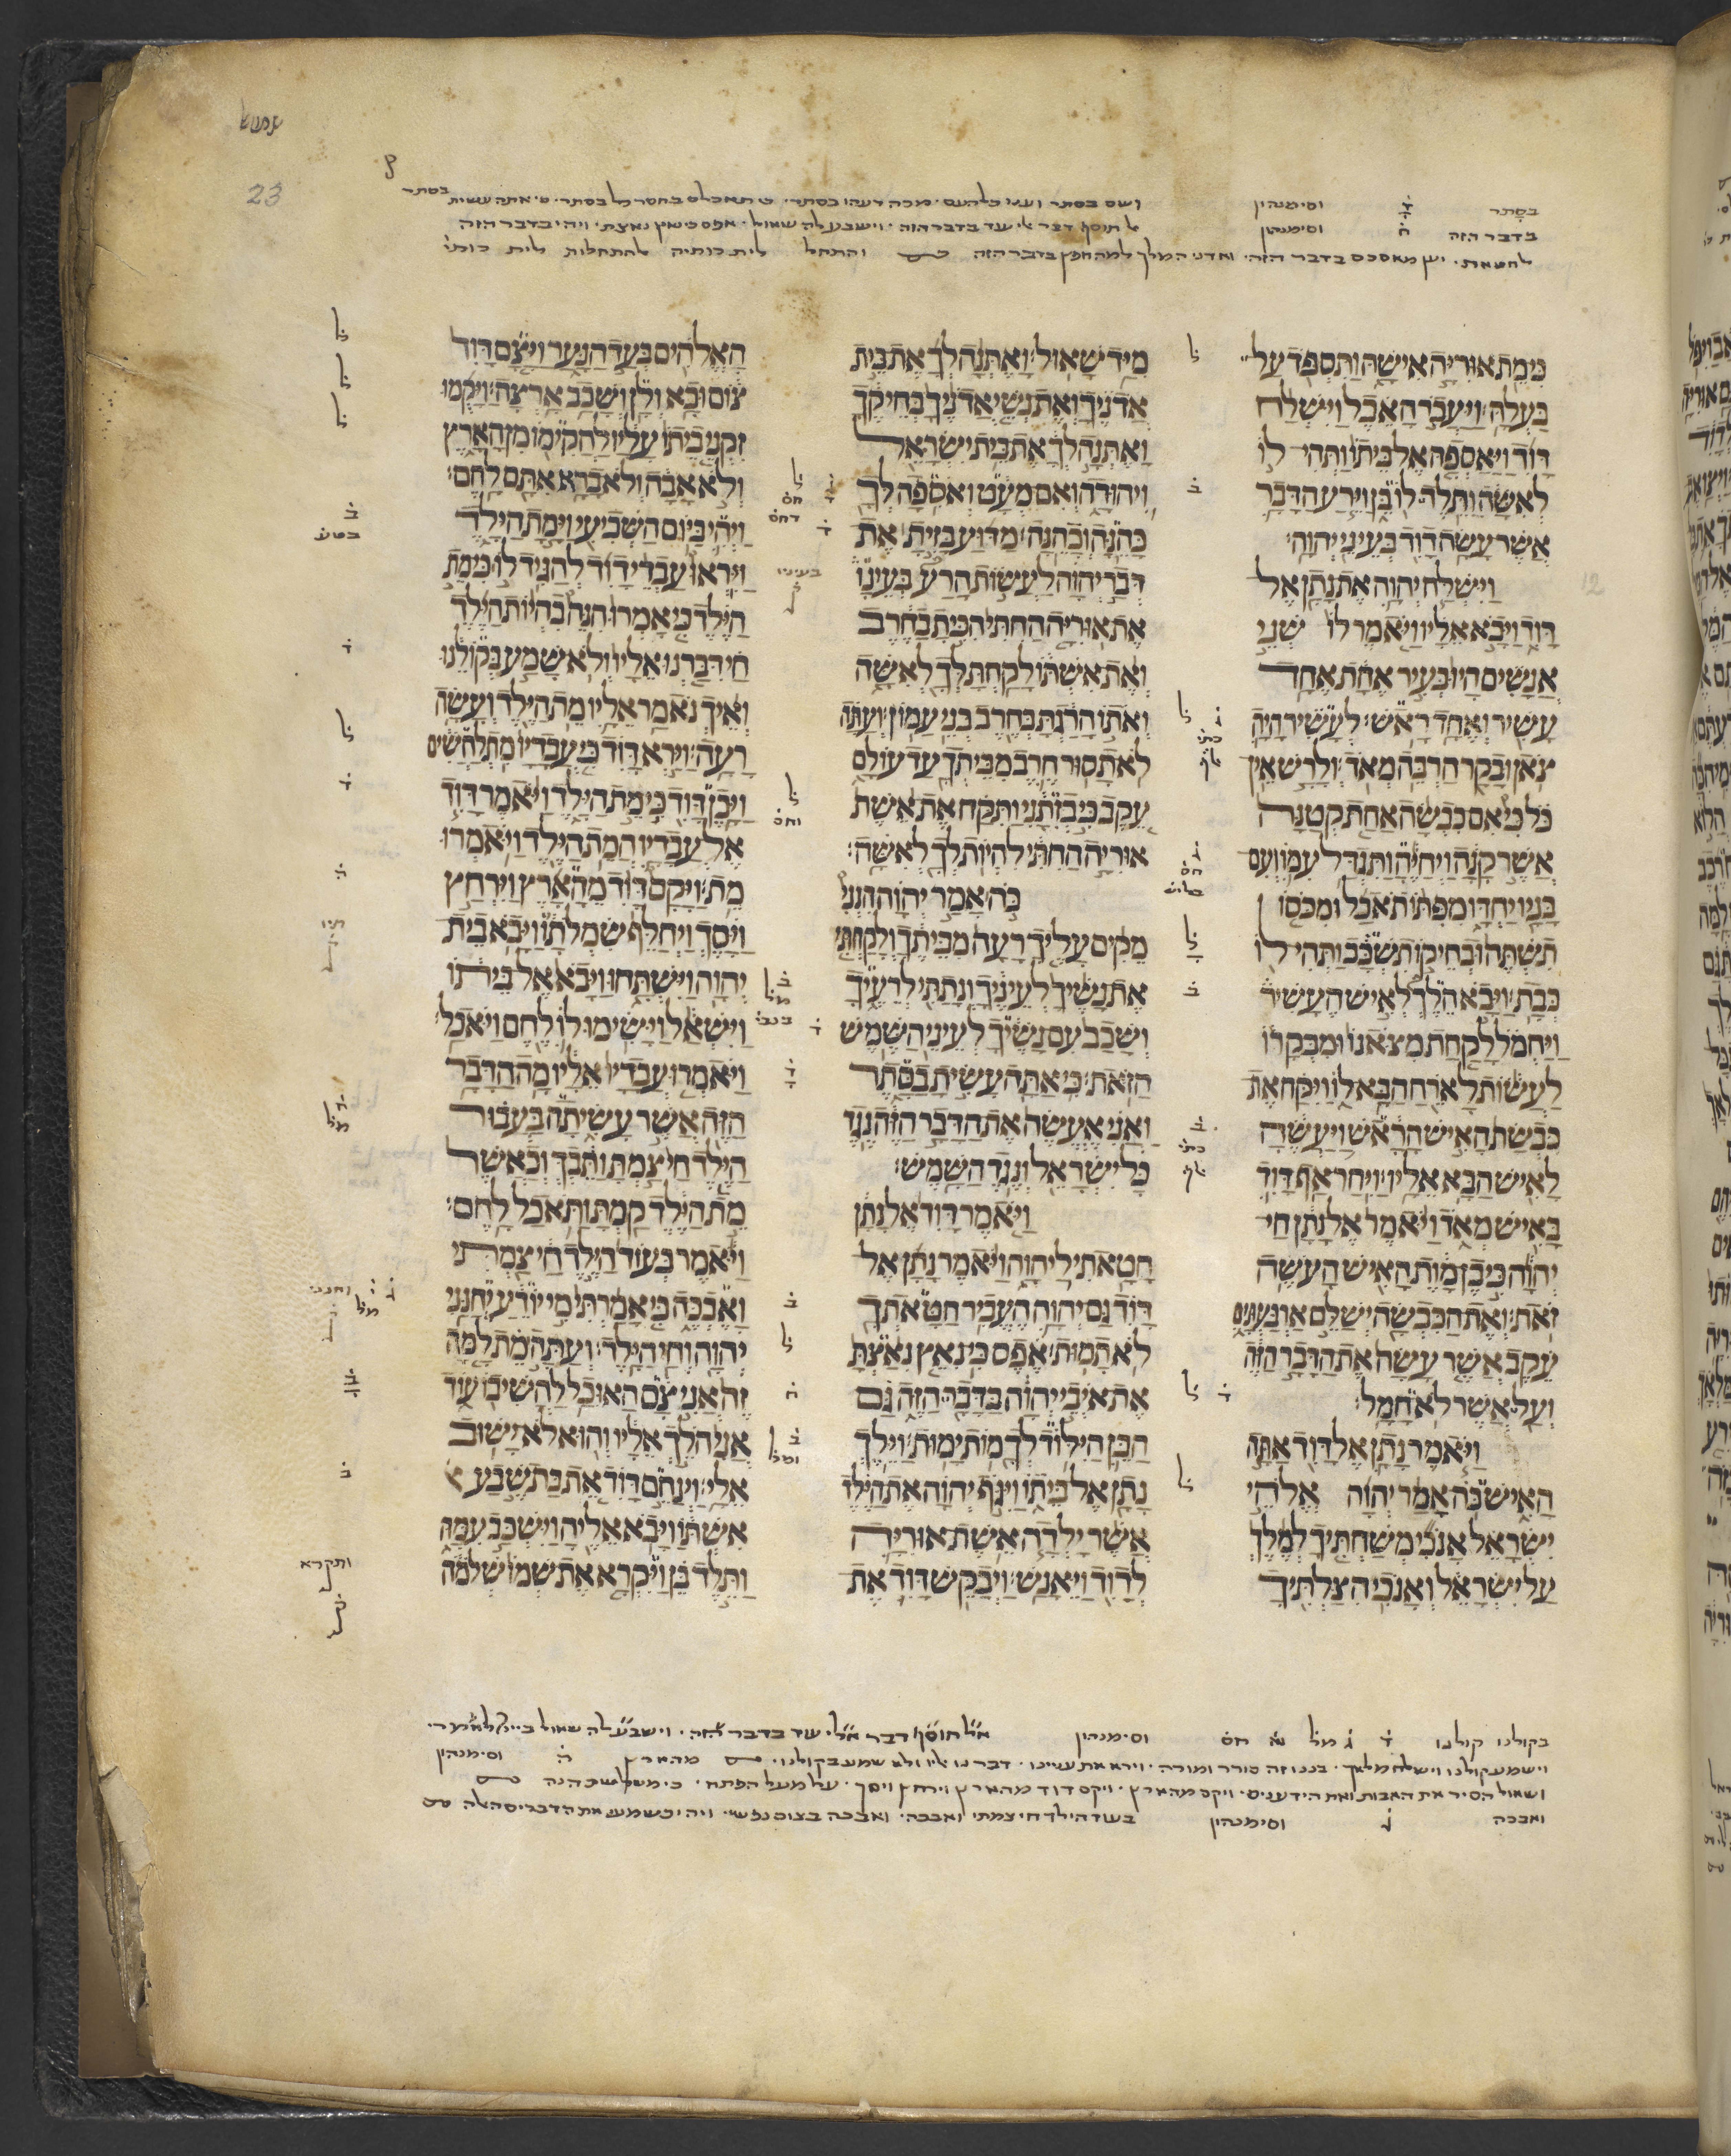 23
בסתר ד וסימנהון ושם בסתר ועני כל העם מכה רעהו בסתר
בדבר הזה ח וסימנהון אל תוסף דבר אלי עוד בדבר הזה וישבע לה שאול אפס כי נאץ נאצת ויהי בדבר הזה
לחטאת יען מאסכם בדבר הזה ואדני המלך למה חפץ בדבר הזה
כי מת אוריה אישה ותספד על
בעלה ויעבר האבל וישלח
דוד ויאספה אל ביתו ותהי לו
לאשה ותלד לו בן וירע הדבר
אשר עשה דוד בעיני יהוה
וישלח יהוה את נתן אל
דוד ויבא אליו ויאמר לו שני
אנשים היו בעיר אחת אחד
עשיר ואחד ראש לעשיר היה
צאן ובקר הרבה מאד ולרש אין
כל כי אם כבשה אחת קטנה
אשר קנה ויחיה ותגדל עמו ועם
בניו יחדו מפתו תאכל ומכסו
תשתה ובחיקו תשכב ותהי לו
כבת ויבא הלך לאיש העשיר
ויחמל לקחת מצאנו ומבקרו
לעשות לארח הבא לו ויקח את
כבשת האיש הראש ויעשה
לאיש הבא אליו ויחר אף דוד
באיש מאד ויאמר אל נתן חי
יהוה כי בן מות האיש העשה
זאת ואת הכבשה ישלם ארבעתים
עקב אשר עשה את הדבר הזה
ועל אשר לא חמל
ויאמר נתן אל דוד אתה
האיש כה אמר יהוה אלהי
ישראל אנכי משחתיך למלך
על ישראל ואנכי הצלתיך
מיד שאול ואתנה לך את בית
אדניך ואת נשי אדניך בחיקך
ואתנה לך את בית ישראל
ויהודה ואם מעט ואספה לך
כהנה וכהנה מדוע בזית את
דבר יהוה לעשות הרע בעינו
את אוריה החתי הכית בחרב
ואת אשתו לקחת לך לאשה
ואתו הרגת בחרב בני עמון ועתה
לא תסור חרב מביתך עד עולם
עקב כי בזתני ותקח את אשת
אוריה החתי להיות לך לאשה
כה אמר יהוה הנני
מקים עליך רעה מביתך ולקחתי
את נשיך לעיניך ונתתי לרעיך
ושכב עם נשיך לעיני השמש
הזאת כי אתה עשית בסתר
ואני אעשה את הדבר הזה נגד
כל ישראל ונגד השמש
ויאמר דוד אל נתן
חטאתי ליהוה ויאמר נתן אל
דוד גם יהוה העביר חטאתך
לא תמות אפס כי נאץ נאצת
את איבי יהוה בדבר הזה גם
הבן הילוד לך מות ימות וילך
נתן אל ביתו ויגף יהוה את הילד
אשר ילדה אשת אוריה
לדוד ויאנש ויבקש דוד את
האלהים בעד הנער ויצם דוד
צום ובא ולן ושכב ארצה ויקמו
זקני ביתו עליו להקימו מן הארץ
ולא אבה ולא ברא אתם לחם
ויהי ביום השביעי וימת הילד
ויראו עבדי דוד להגיד לו כי מת
הילד כי אמרו הנה בהיות הילד
חי דברנו אליו ולא שמע בקולנו
ואיך נאמר אליו מת הילד ועשה
רעה וירא דוד כי עבדיו מתלחשים
ויבן דוד כי מת הילד ויאמר דוד
אל עבדיו המת הילד ויאמרו
מת ויקם דוד מהארץ וירחץ
ויסך ויחלף שמלתו ויבא בית
יהוה וישתחו ויבא אל ביתו
וישאל וישימו לו לחם ויאכל
ויאמרו עבדיו אליו מה הדבר
הזה אשר עשיתה בעבור
הילד חי צמת ותבך וכאשר
מת הילד קמת ותאכל לחם
ויאמר בעוד הילד חי צמתי
ואבכה כי אמרתי מי יודע יחנני
יהוה וחי הילד ועתה מת למה
זה אני צם האוכל להשיבו עוד
אני הלך אליו והוא לא ישוב
אלי וינחם דוד את בת שבע
אשתו ויבא אליה וישכב עמה
ותלד בן ויקרא את שמו שלמה
בעיניו
ותקרא
ק
בקולנו קולנו
וישמע קולנו וישלח מלאך בננו זה סורר ומורה וירא את ענינו דברנו אליו ולא שמע בקולנו מהארץ ה וסימנהון
ושאול הסיר את האבות ואת הידענים ויקם מהארץ ויקם דוד מהארץ וירחץ ויסך
ואבכה ג וסימנהון בעוד הילד חי צמתי ואבכה ואבכה בצום נפשי ויהי כשמעי את הדברים האלה